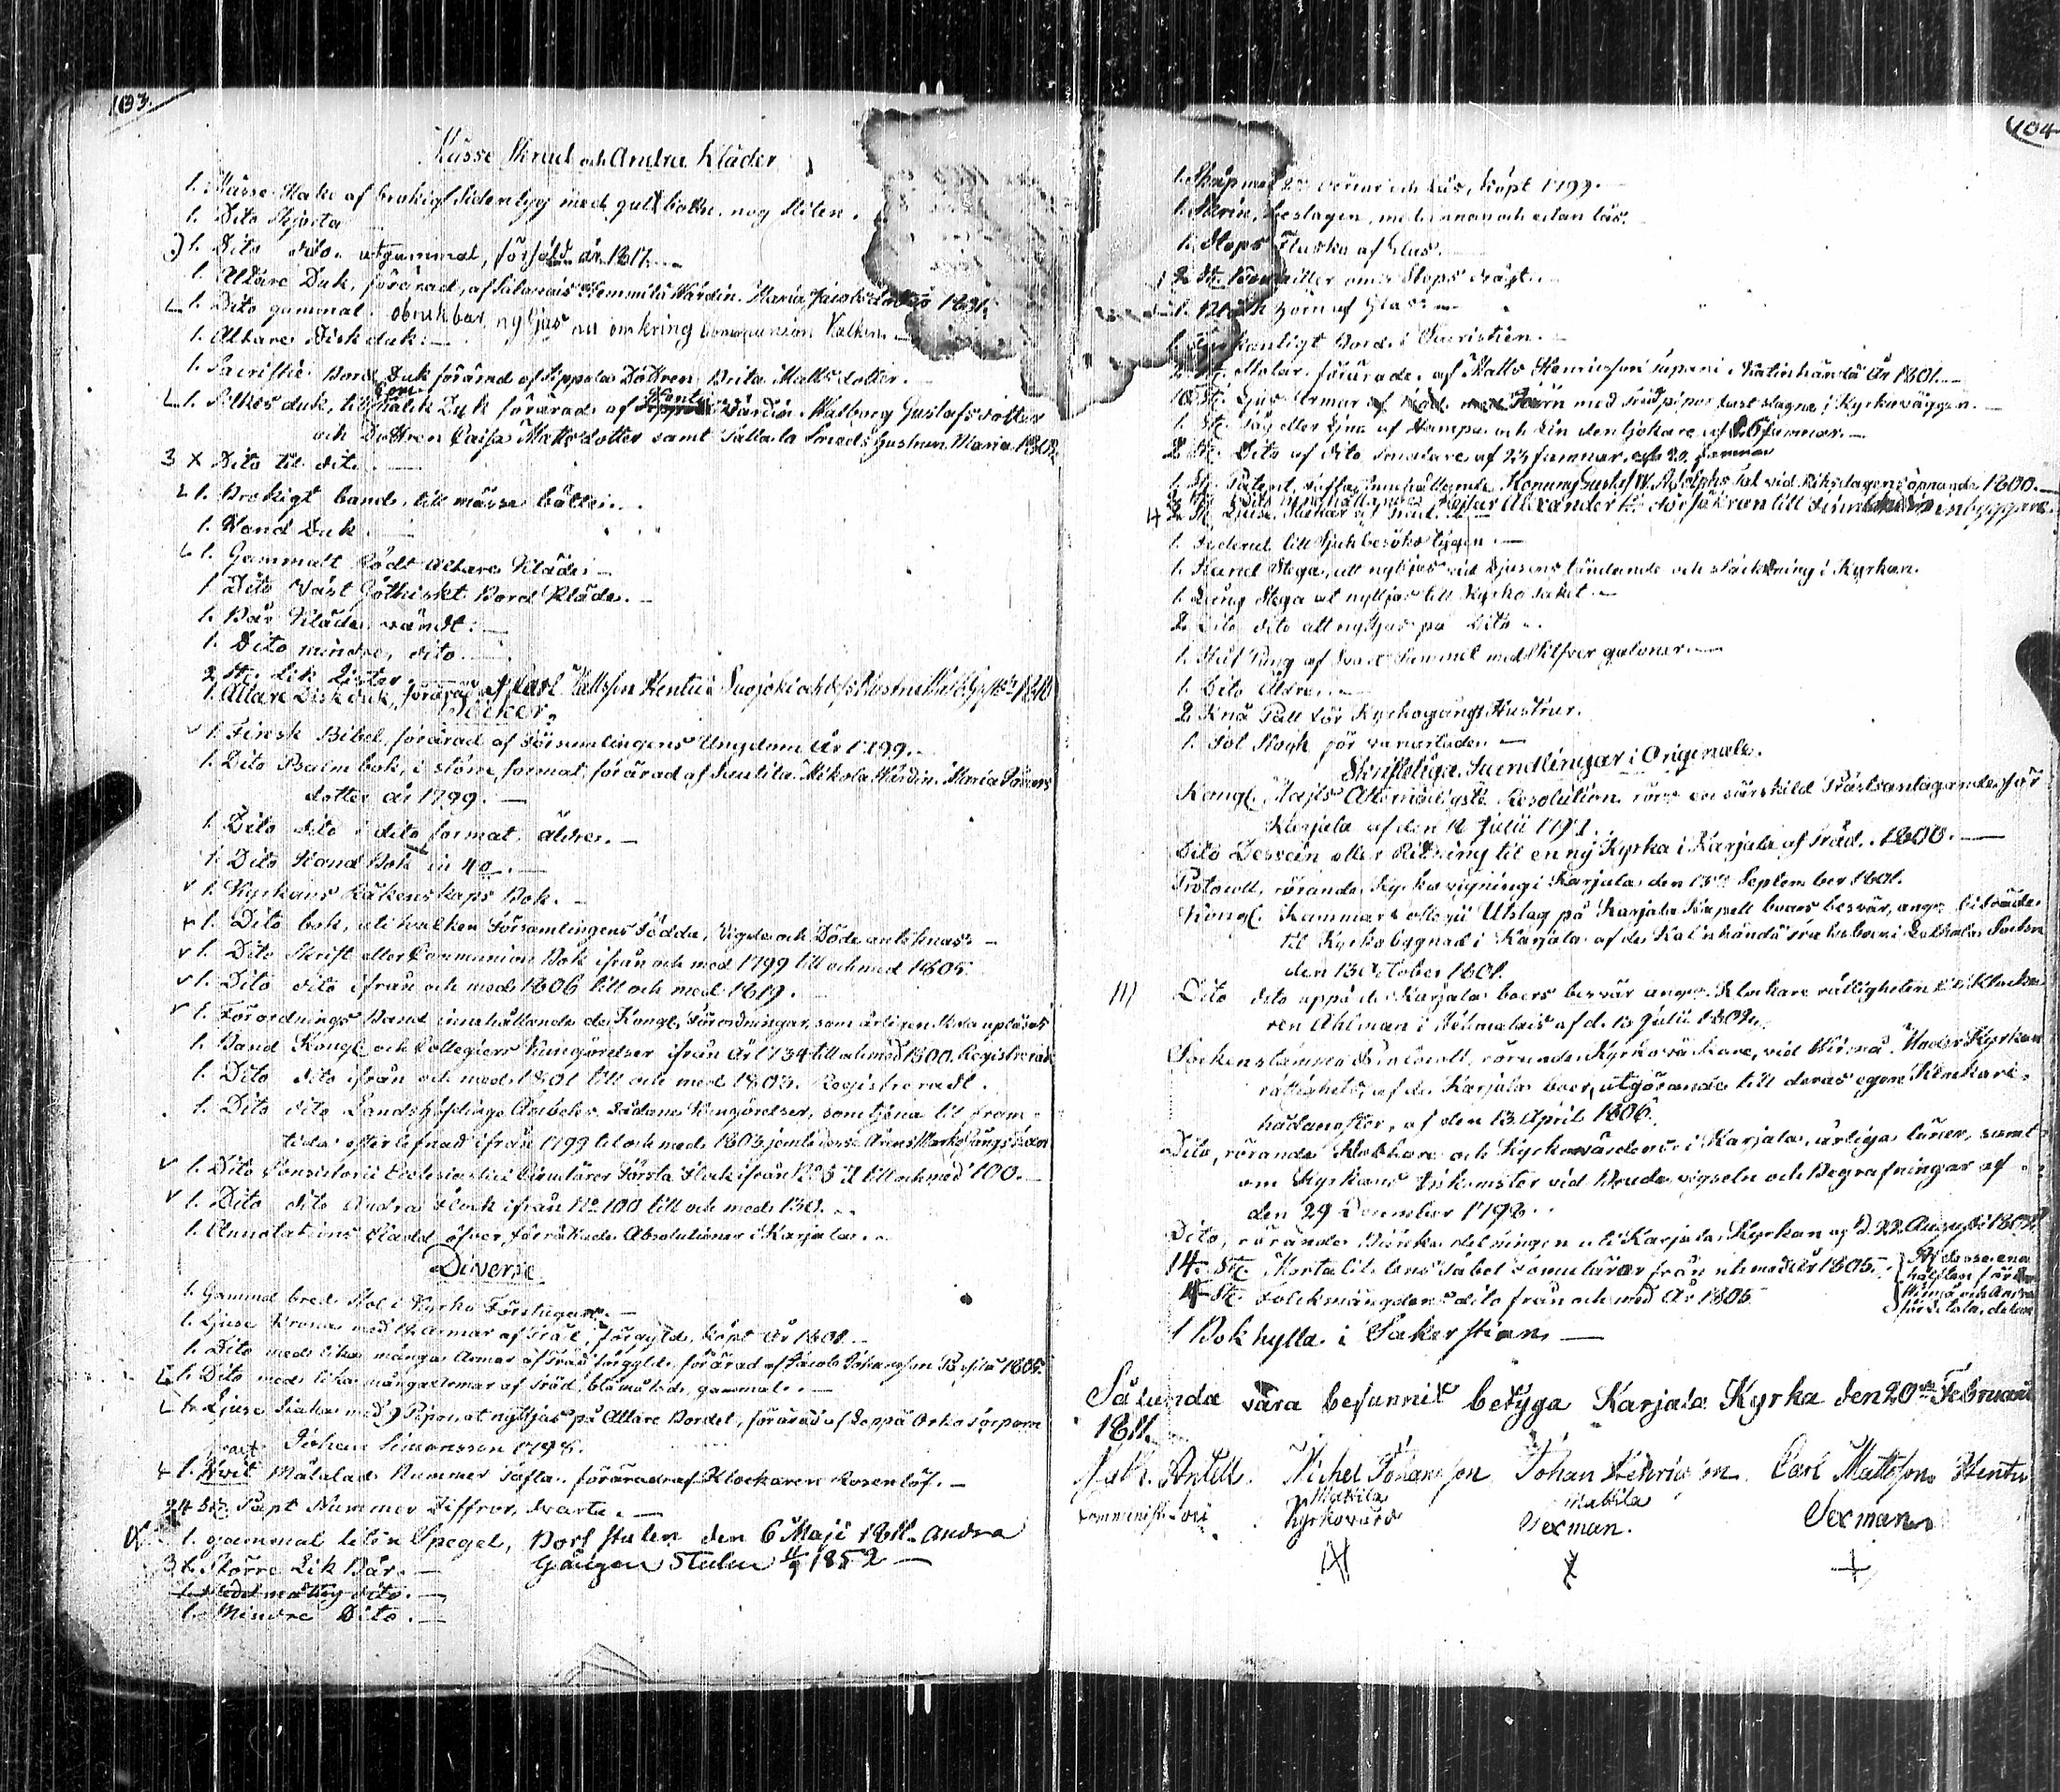 103.
Mässe Skrud och Andra Kläder
1. Mässe Hake af brokig Sidentyg med gult
1. Dito Skjorta
1. Dito dito. utgammal, försåld år 1817.
1. Altare Duk, förärad, af Hemmilä Värdin. Maria Jacobsdotter 1831.
1. Dito gammal.
1. Altare Disk duk.
1. Sacristie Bord Duk förärad af Seppälä Dottren Brita Matts dotter.
1. Silkes duk, till Kalk Duk förärad af Värdin Walborg Gustafsdotter
och Dottren Caisa Matts dotter samt Maria 1802.
3 X Dito til dito.
1. Brokigt band, till mässe bälte.
1. Hand Duk.
1. Gammalt Rödt Altare Kläde.
1. Dito Väst Göthiskt Bord Kläde.
1. Bår Kläde, vändt.
1. Dito mindre, dito.
2 St. Lik Kistor.
1. Altare Disk duk, förärad af Carl Mattsson Hentu i Suojoki 1810
Böcker.
1. Finsk Bibel, förärad af Församlingens Ungdom År 1799.
1. Dito Psalmbok, i större format, förärad af Mikola Värdin. Maria
dotter år 1799.
1. Dito dito i dito format, äldre.
1. Dito Hand Bok in 4o.
1. Kyrkans Räkenskaps Bok.
1. Dito bok, uti hvilken Församlingens Födda, Vigda och Döda antecknas.
1. Dito Skrift eller Communion Bok ifrån och med 1799 till och med 1805.
1. Dito dito ifrån och med 1806 till och med 1819.
1. Förordnings Band innehållande de Kongl. Förordningar, som årligen skola upläsas
1. Band Kongl. och Collegiers Kungörelser ifrån År 1734 till och med 1800. Registrerade
1. Dito dito ifrån och med 1801 till och med 1803. Registreradt.
1. Dito dito Landshöfdinge Ämbetes sådane Kungörelser, som tjena til fram-
tida efterlefnad ifrån 1799 til och med 1803 jemte
1. Dito Consistorii Ecclesiastici Circulärer Första Flock ifrån No till och med 100.
1. Dito dito Andra Flock ifrån No 100 till och med 150.
1. Annotations Bladd öfver förrättade Absolutioner i Karjala.
Diverse
1. Gammal bred Stol i Kyrko Förstugan.
1. Ljuse Krona med 12 Armar af Träd, förgyld, köpt År 1801.
1. Dito med lika många Armar af Träd förgyld, förärad af Jacob Johansson 1805.
1. Dito med lika många Armar af Träd, blåmålad, gammal.
1. Ljuse Stake med 3 Pipor, at nyttjas på Altare Bordet, förärad af Seppä
Johan Simonsson 1798.
1. Svart Målad Nummer Tafla, förärad af Klockaren Rosenlöf.
24 St. Papt Nummer Ziffror, svarta.
1. gammal liten Spegel, Bort stulen den 6 Maji 1811. Andra
Gången Stulen 1852
3 Större Lik Bår.
1. Medelmåttig dito.
1. Mindre Dito.
104
1. Skåp med dörrar och Lås, köpt 1799.
1. Skrin, beslagen, med innan och utan lås.
1. Stops Flaska af Glas.
2 St. Bouteiller om 1 Stops drägt.
1. af Glas.
1. Fyrkantigt Bord i Sacristien.
2 St. Stolar förärade af Matts Henricsson i Katinhändä År 1801.
10 St. Ljus Armar af med Trädpipor fast slagna i Kyrkoväggen.
1. St. Tåg eller Lina af Hampa och Lin den tjokare af 25 famnar.
2 St. Dito af dito smalare af 23 famnar, 20 famnar
1. St. Patent, Innehållande Konung Gustaf IV Adolphs tal vid Riksdagens öpnande 1800.
1 St. Dito innehållande Kejsar Alexander 1 Försäkran till Finnlands inbyggare.
4 2 St. Ljuse Stakar af Träd.
1. Foderal till Sjukbesöks tygen.
1. Hand Stega, att nyttjas vid Ljusens tändande och släckning i Kyrkan.
1. Lång Stega at nyttjas till Kyrko taket.
2 Dito dito att nyttjas på Dito.
1. Håf Pung af Svart Sammet med Silfver galoner.
1. Dito Äldre.
2. Knä Pall för Kyrkogångs Hustrur.
1. Fot Stock för
Skrifteliga Handlingar i Originale.
Kongl. Majts Allernådigste Resolution rör. en särskild Prästs antagande för
Karjala af den 12 Julii 1791.
Dito Dessein eller Ritning til en ny Kyrka i Karjala af träd. 1800.
Protocoll, rörande Kyrkovigning i Karjala den 13de September 1801.
Kongl. Kammar Collegii Utslag på Karjala Kapell boers besvär, ang. biträde
til Kyrkobygnad i Karjala af de Katinhändä i Letala Sockn
den 13 October 1801.
Dito dito uppå de Karjala boers besvär ang. Klockare rättigheten til Klocka-
ren Ahlman i af d. 13 Julii 1802.
Sockenstämma Protocoll, rörande Kyrkoväckare, vid Virmå Moder Kyrkan
rättighets, af de Karjala boer, utgörande till deras egen Klockare
hädanefter, af den 13 April 1806.
Dito, rörande Klockare och Kyrkovärdens i Karjala, årliga löner, samt
om Kyrkans Inkomster vid Brude vigseln och Begrafningar af
den 29 December 1798.
Dito, rörande Bänke delningen uti Karjala Kyrkan af d. 22 Augusti 1802.
14 St. Mortalitetens Tabel formulärer från och med år 1805.
14 St. Folckmängdens dito från och med År 1805
hälften för
Virmå och Andra
för Letala delen
1 Bok hylla i Sakerstian
Sålunda vara befunnit betyga Karjala Kyrka den 20de Februarii
1811.
Nath. Antell. Michel Johansson Johan Henricsson Carl Mattsson Hentu
Mattila Mattila
Comminister loci Kyrkovärd Sexman. Sexman